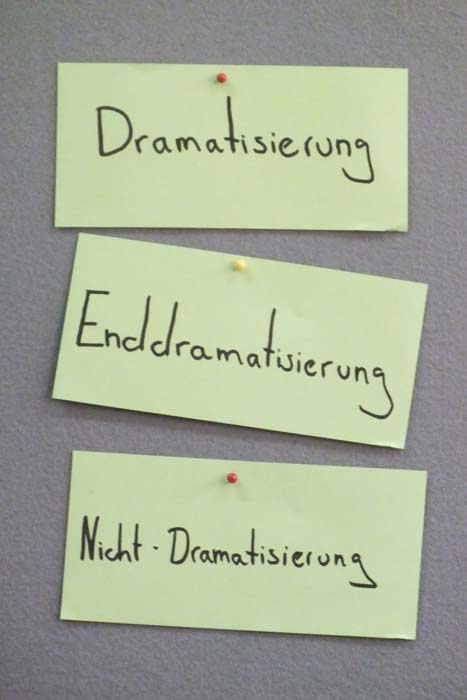 Dramatisierung
Enddramatisierung
Nicht-Dramatisierung